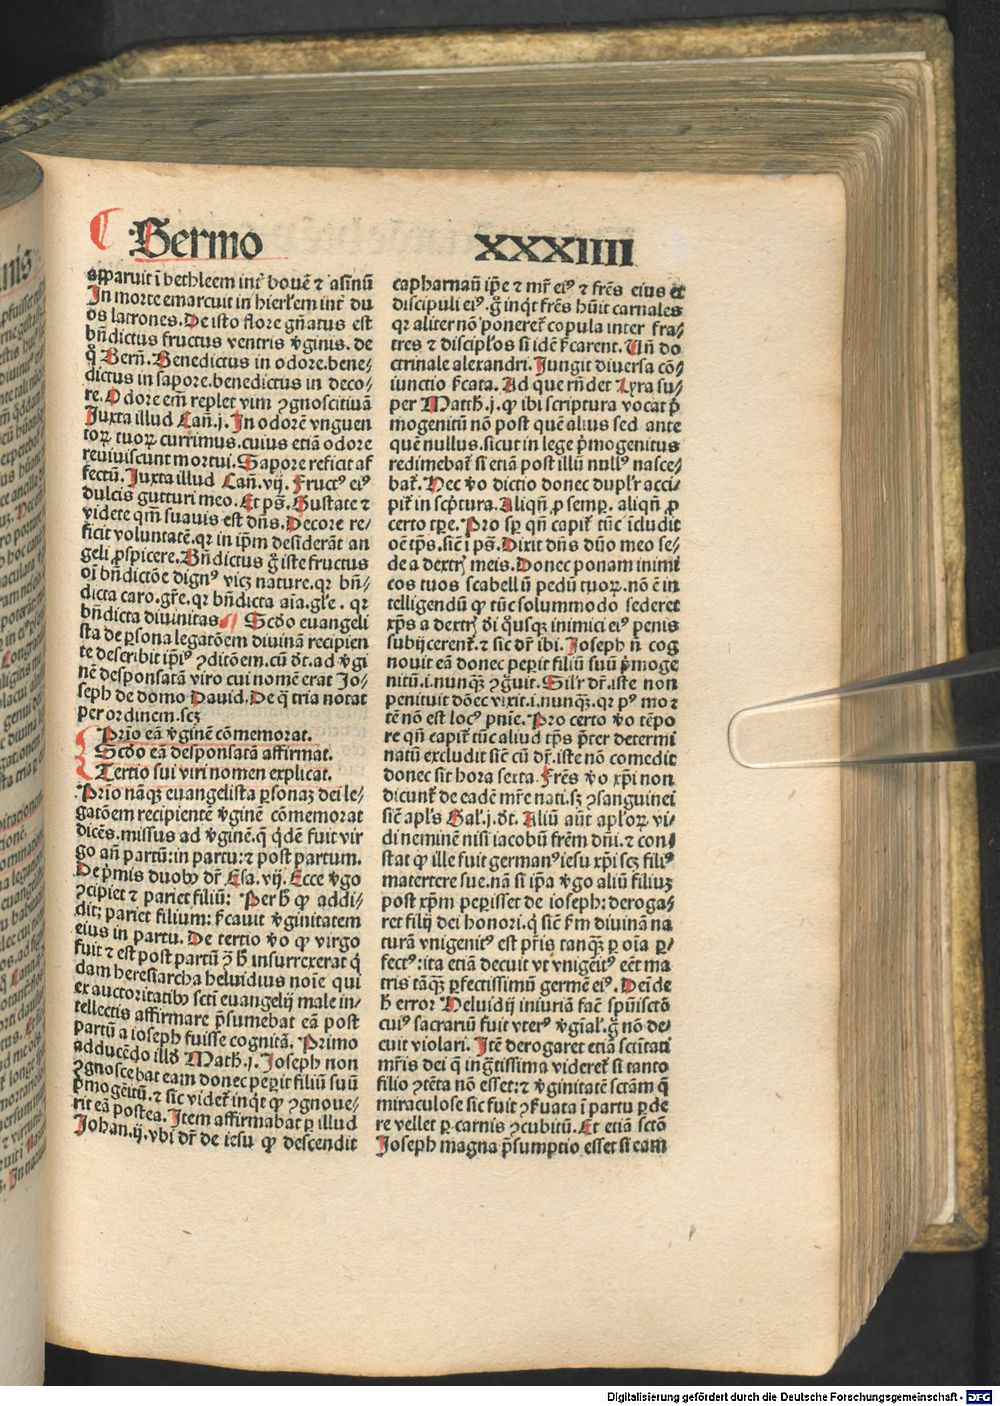 Sermo XXXIIII
apparuit ī bethleem int̄ bouē ⁊ asinū
In morte emarcuit in hierl̄em int̄ du
os latrones. De isto flore gn̄atus est
bn̄dictus fructus ventris v̄ginis. de
q̊ Bern̄. Benedictus in odore. bene⸗
dictus in sapore. benedictus in deco⸗
re. Odore em̄ replet vim ꝯgnoscitiuā
Juxta illud Can̄. j. In odorē vnguen
toꝝ tuoꝝ currimus. cuius etiā odore
reuiuiscunt mortui. Sapore reficit af
fectū. Juxta illud Can̄. vij. Fructꝰ eiꝰ
dulcis gutturi meo. Et ps̄. Gustate ⁊
videte qm̄ suauis est dn̄s. Decore re⸗
ficit voluntatē. qꝛ in ip̄m desiderāt an
geli ꝓspicere. Bn̄dictus g̊ iste fructus
oī bn̄dictōe dignꝰ vicꝫ nature. qꝛ bn̄⸗
dicta caro. gr̄e. qꝛ bn̄dicta aīa. gl̄e. qꝛ
bn̄dicta diuinitas ¶ Scd̄o euangeli
sta de ꝑsona legatōem diuinā recipien
te describit ip̄iꝰ ꝯditōem. cū d̄t. ad v̄gi
nē desponsatā viro cui nomē erat Jo⸗
seph de domo Dauid. De q̄ tria notat
per ordinem. scꝫ
Prīo eā v̄ginē cōmemorat.
Scd̄o eā desponsatā affirmat.
Tertio sui viri nomen explicat.
Prīo nāqꝫ euangelista ꝑsonaꝫ dei le⸗
gatōem recipientē v̄ginē cōmemorat
dicēs. missus ad v̄ginē. q̄ qdē fuit vir
go an̄ partū: in partu: ⁊ post partum.
De p̄mis duobꝰ dr̄ Esa. vij. Ecce v̄go
ꝯcipiet ⁊ pariet filiū: Per h̄ ꝙ addi⸗
dit: pariet filium: k̄cauit v̄ginitatem
eius in partu. De tertio v̄o ꝙ virgo
fuit ⁊ est post partū ꝯ h̄ insurrexerat q̄
dam heresiarcha heluidius noīe qui
ex auctoritatibꝰ scti euangelij male in⸗
tellectis affirmare p̄sumebat eā post
partū a ioseph fuisse cognitā. Primo
adducēdo illđ Math̄. j. Joseph non
ꝯgnoscebat eam donec peꝑit filiū suū
p̄mogēitū. ⁊ sic videt̄ inqt ꝙ ꝯgnoue⸗
rit eā postea. Item affirmabat ꝑ illud
Johan. ij. vbi dr̄ de iesu ꝙ descendit
capharnaū ip̄e ⁊ mr̄ eiꝰ ⁊ frēs eius et
discipuli eiꝰ. g̊ inqt frēs hūit carnales
qꝛ aliter nō poneret̄ copula inter fra⸗
tres ⁊ discipl̄os si idē k̄carent. Vn̄ do
ctrinale alexandri. Jungit diuersa cō⸗
iunctio k̄cata. Ad que rn̄det Lyra su⸗
per Matth̄. j. ꝙ ibi scriptura vocat p̄
mogenitū nō post quē alius sed ante
quē nullus. sicut in lege p̄mogenitus
redimebat̄ si etiā post illū nullꝰ nasce⸗
bat̄. Nec v̄o dictio donec dupl̄r acci⸗
pit̄ in scp̄tura. Aliqn̄ ꝓ semꝑ. aliqn̄ ꝓ
certo tꝑe. Pro sꝑ qn̄ capit̄ tūc īcludit
oē tp̄s. sic̄ ī ps̄. Dixit dn̄s dn̄o meo se⸗
de a dextrꝭ meis. Donec ponam inimi
cos tuos scabellū pedū tuoꝝ. nō ē in
telligendū ꝙ tūc solummodo sederet
xp̄s a dextrꝭ di q̊usqꝫ inimici eiꝰ penis
subijcerent̄. ⁊ sic dr̄ ibi. Joseph n̄ cog
nouit eā donec peꝑit filiū suū p̄moge
nitū. i. nunqꝫ ꝯg̊uit. Sil̄r dr̄. iste non
penituit dōec vixit. i. nunqꝫ. qꝛ pꝰ moꝛ
tē nō est locꝰ pn̄ie. Pro certo v̄o tēpo
re qn̄ capit̄ tūc aliud tp̄s p̄ter determi
natū excludit sic̄ cū dr̄. iste nō comedit
donec sit hora sexta. Frēs v̄o xp̄i non
dicunt̄ de eadē mr̄e nati. sꝫ ꝯsanguinei
sic̄ apl̄s Gal̄. j. d̄t. Aliū aūt apl̄oꝝ vi⸗
di neminē nisi iacobū frēm dn̄i. ⁊ con⸗
stat ꝙ ille fuit germanꝰ iesu xp̄i scꝫ filiꝰ
matertere sue. nā si ip̄a v̄go aliū filiuꝫ
post xp̄m peꝑisset de ioseph: deroga⸗
ret filij dei honori. q̄ sic̄ k̄m diuinā na
turā vnigenitꝰ est pr̄is tanqꝫ ꝑ oīa ꝑ⸗
fectꝰ: ita etiā decuit vt vnigēitꝰ eēt ma
tris tāqꝫ ꝑfectissimū germē eiꝰ. Deīde
h̄ error Heluidij iniuriā fac̄ spūisctō
cuiꝰ sacrariū fuit vterꝰ v̄gīal̄. g̊ nō de⸗
cuit violari. Itē derogaret etiā scitati
mr̄is dei q̄ ingtissima videret̄ si tanto
filio ꝯtēta nō esset: ⁊ v̄ginitatē sctām q̄
miraculose sic fuit ꝯk̄uata ī partu ꝑde
re vellet ꝑ carnis ꝯcubitū. Et etiā sctō
Joseph magna p̄sumptio esset si eam
Digitalisierung gefördert durch die Deutsche Forschungsgemeinschaft - DFG